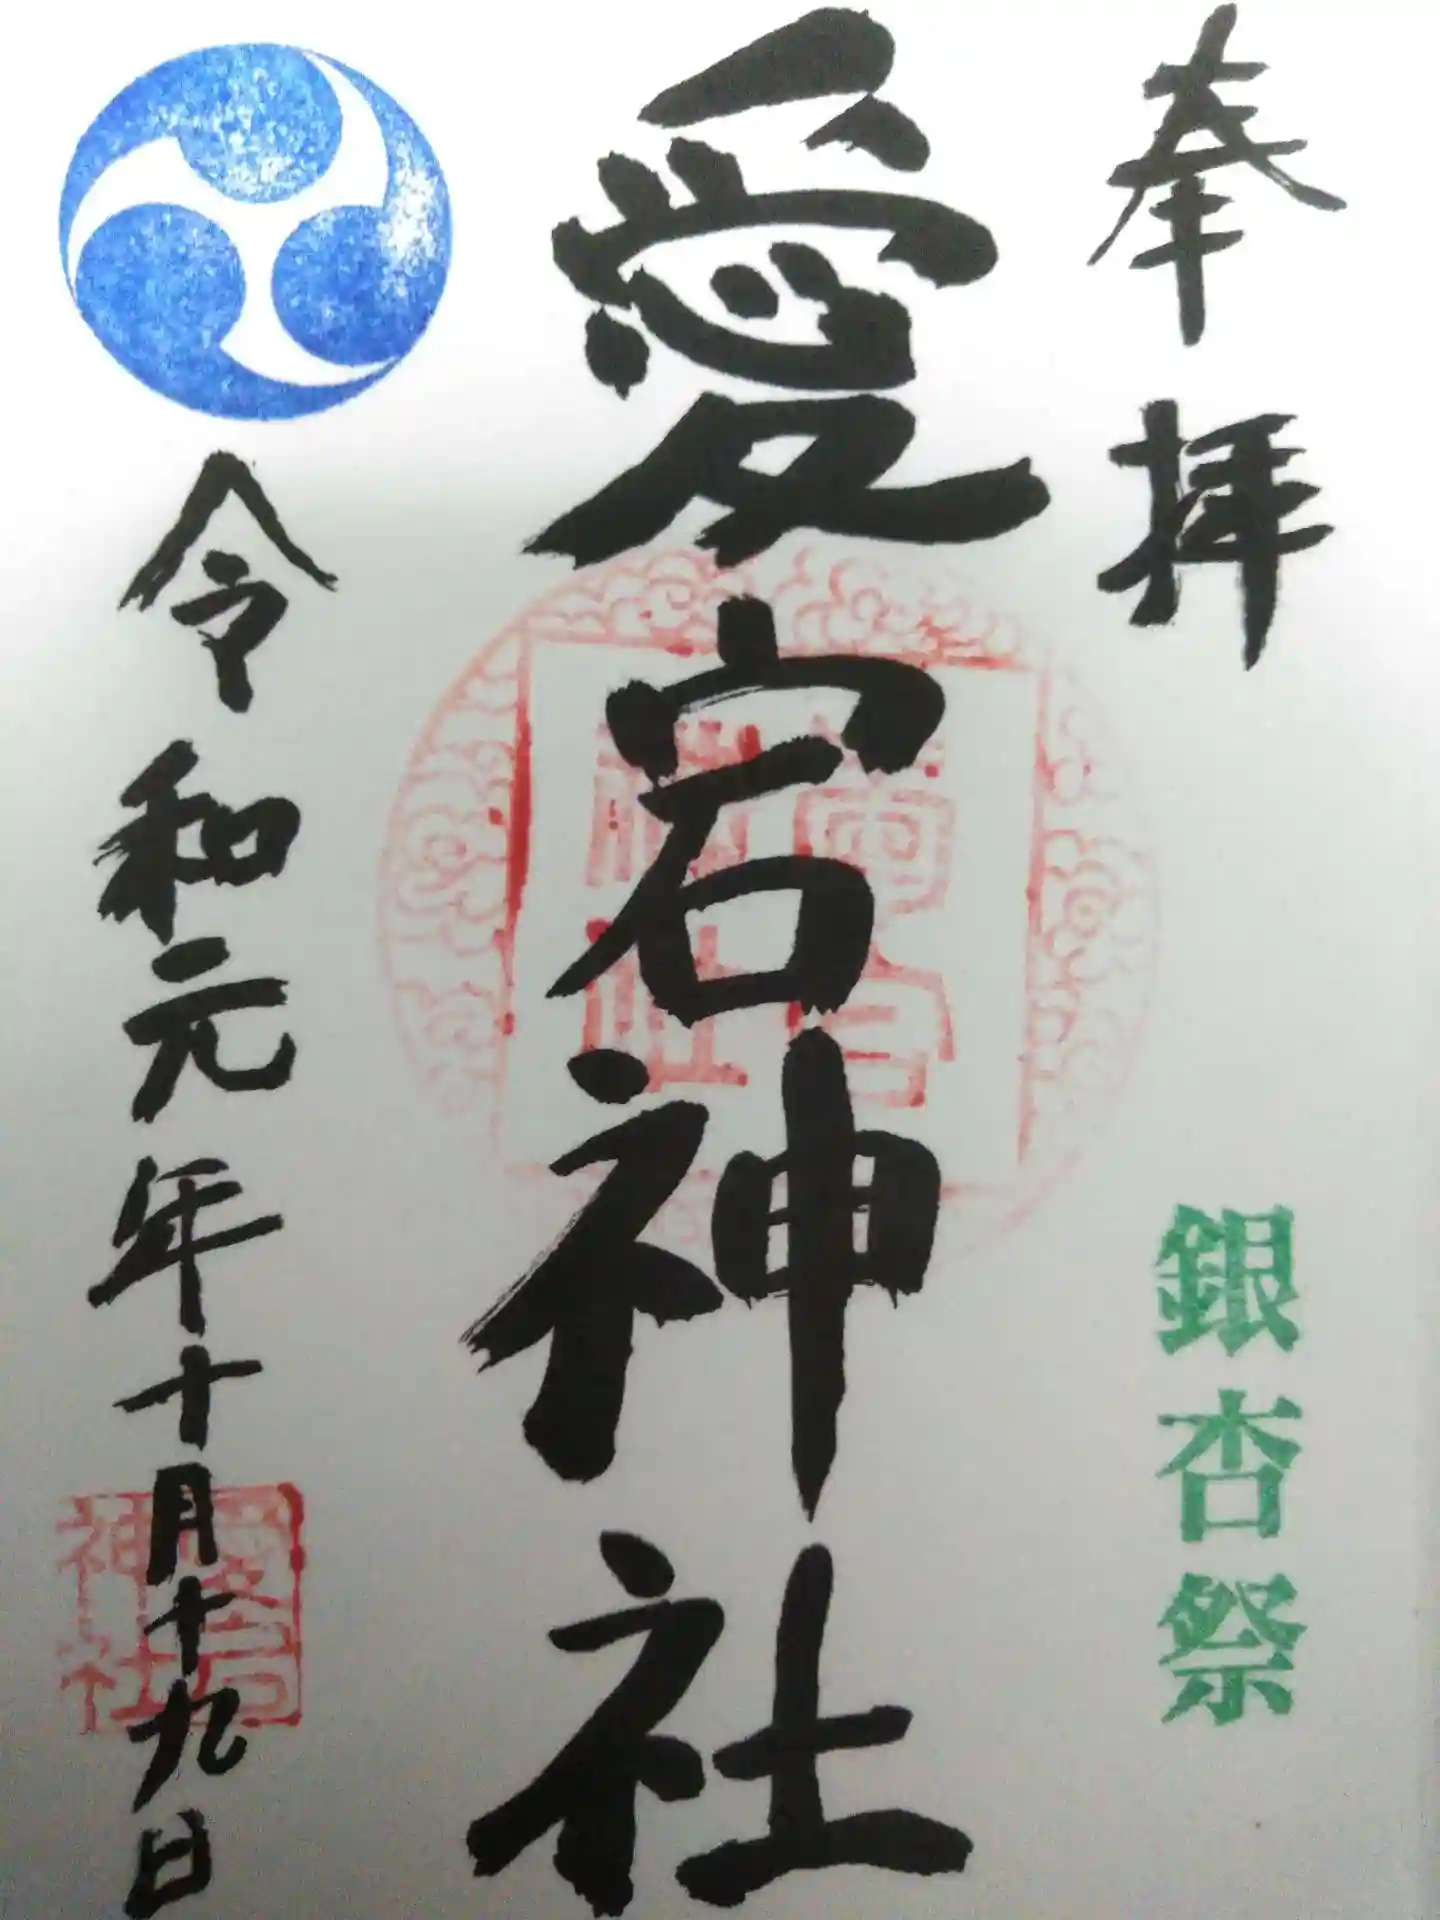 奉拝
銀杏祭
愛宕神社
令和元年十月十九日
愛宕神社